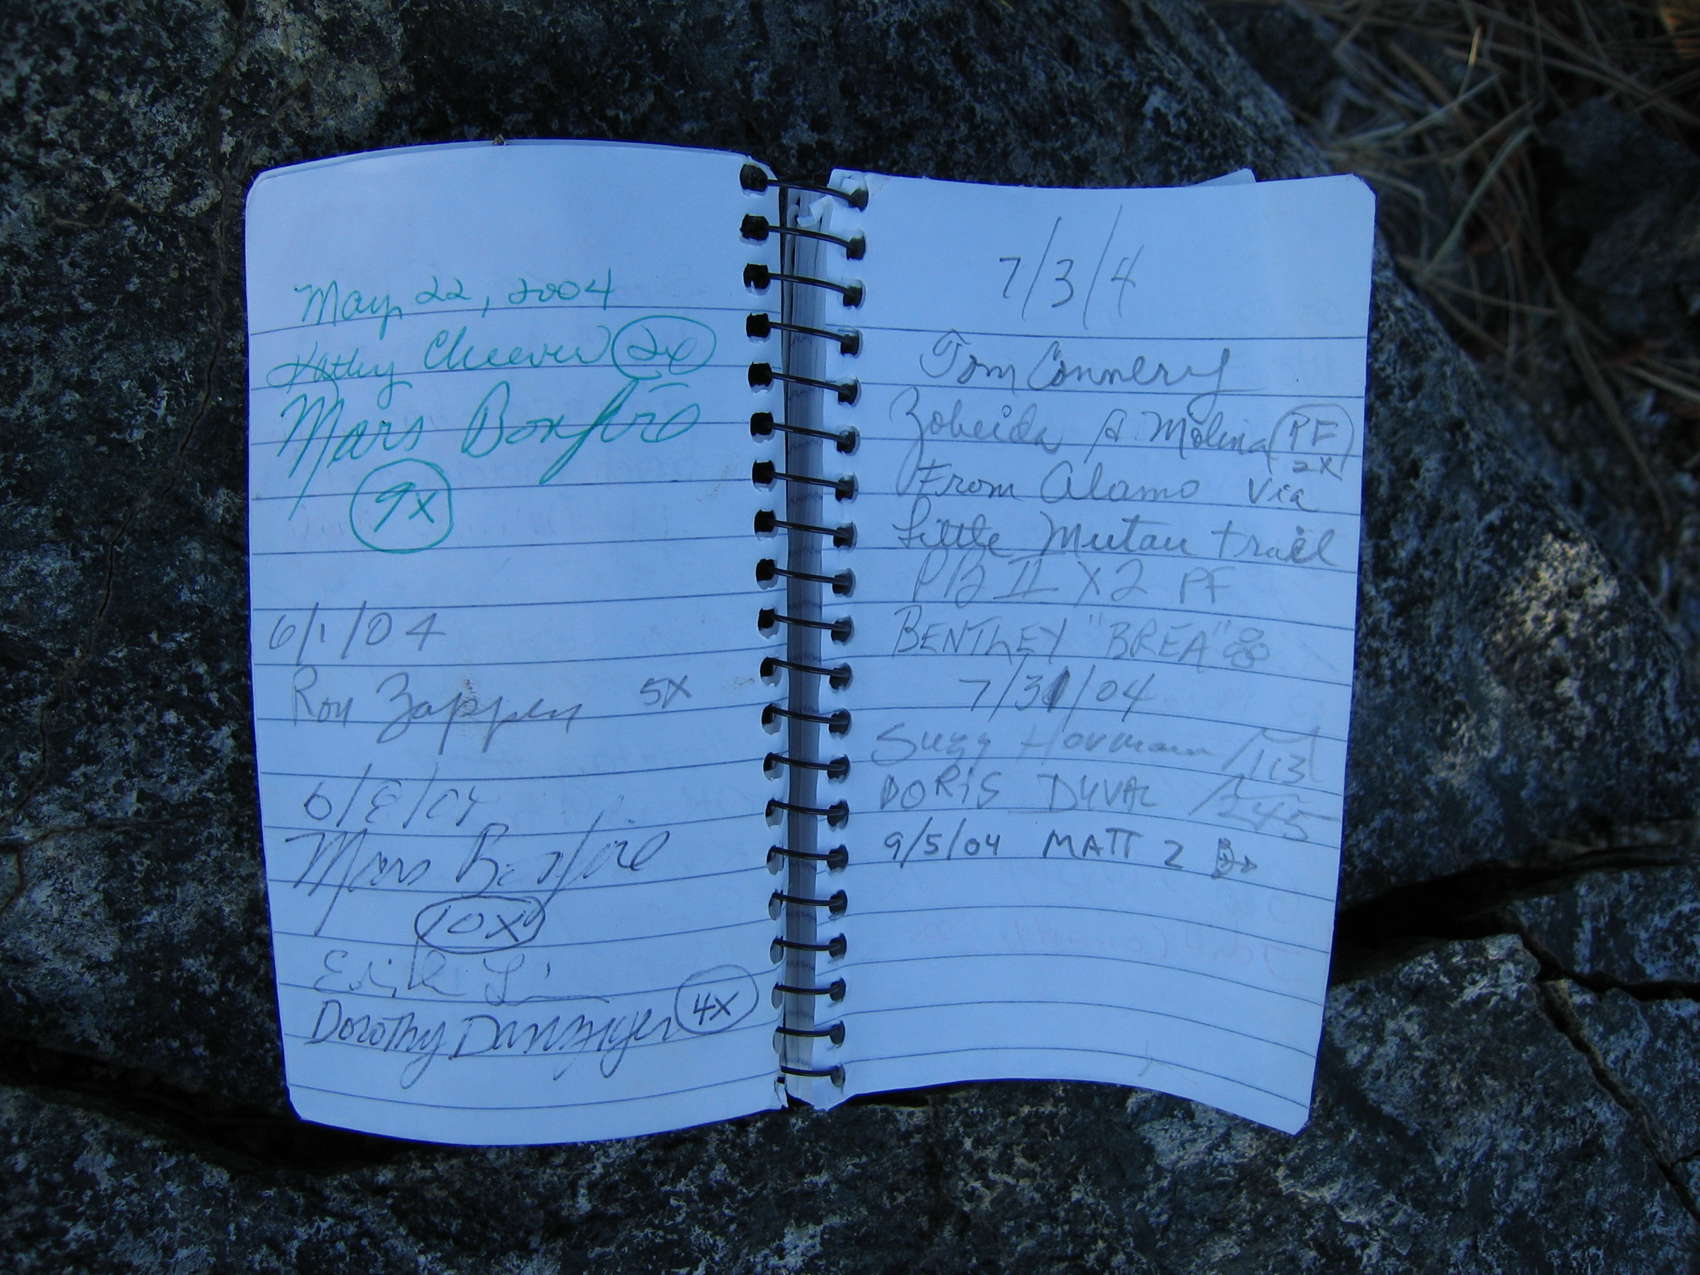 May 22, 2004
Kathy Cheever 2x
Mars Bonfire
9x
6/1/04
Ron Zappen 5x
6/8/04
Mars Bonfire
10x
Dorothy Danziger 4x
7/3/4
Tom Connery
Zobeida A. Molina PF
2x
From Alamo Via
Little Mutau trail
PB II X2 PF
BENTLEY "BREA"
7/31/04
Suzy Hermann /113
DORIS DUVAL /245
9/5/04 MATT Z